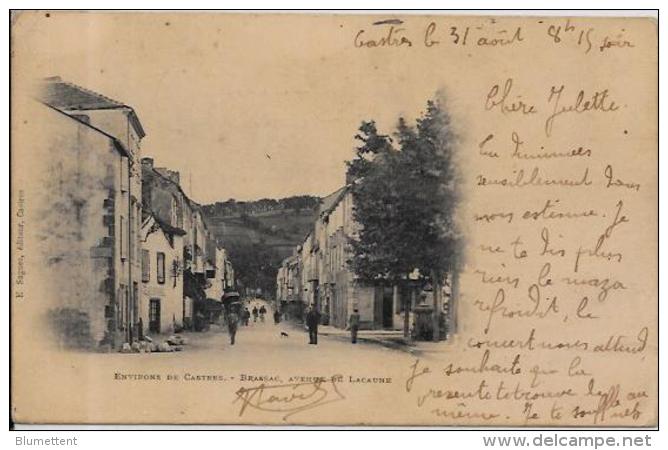 Castres le 31 août 8h15 soir
Chère Juliette.
Tu diminues
sensiblement dans
mon estime. Je
ne te dis plus
rien le
refroidit, le
concert nous attend
Je souhaite que la
présente te trouve de
même. Je te
E. Sagnes, éditeur, Castres
ENVIRONS DE CASTRES. - BRASSAC, AVENUE DE LACAUNE
Blumettent
www.delcampe.net